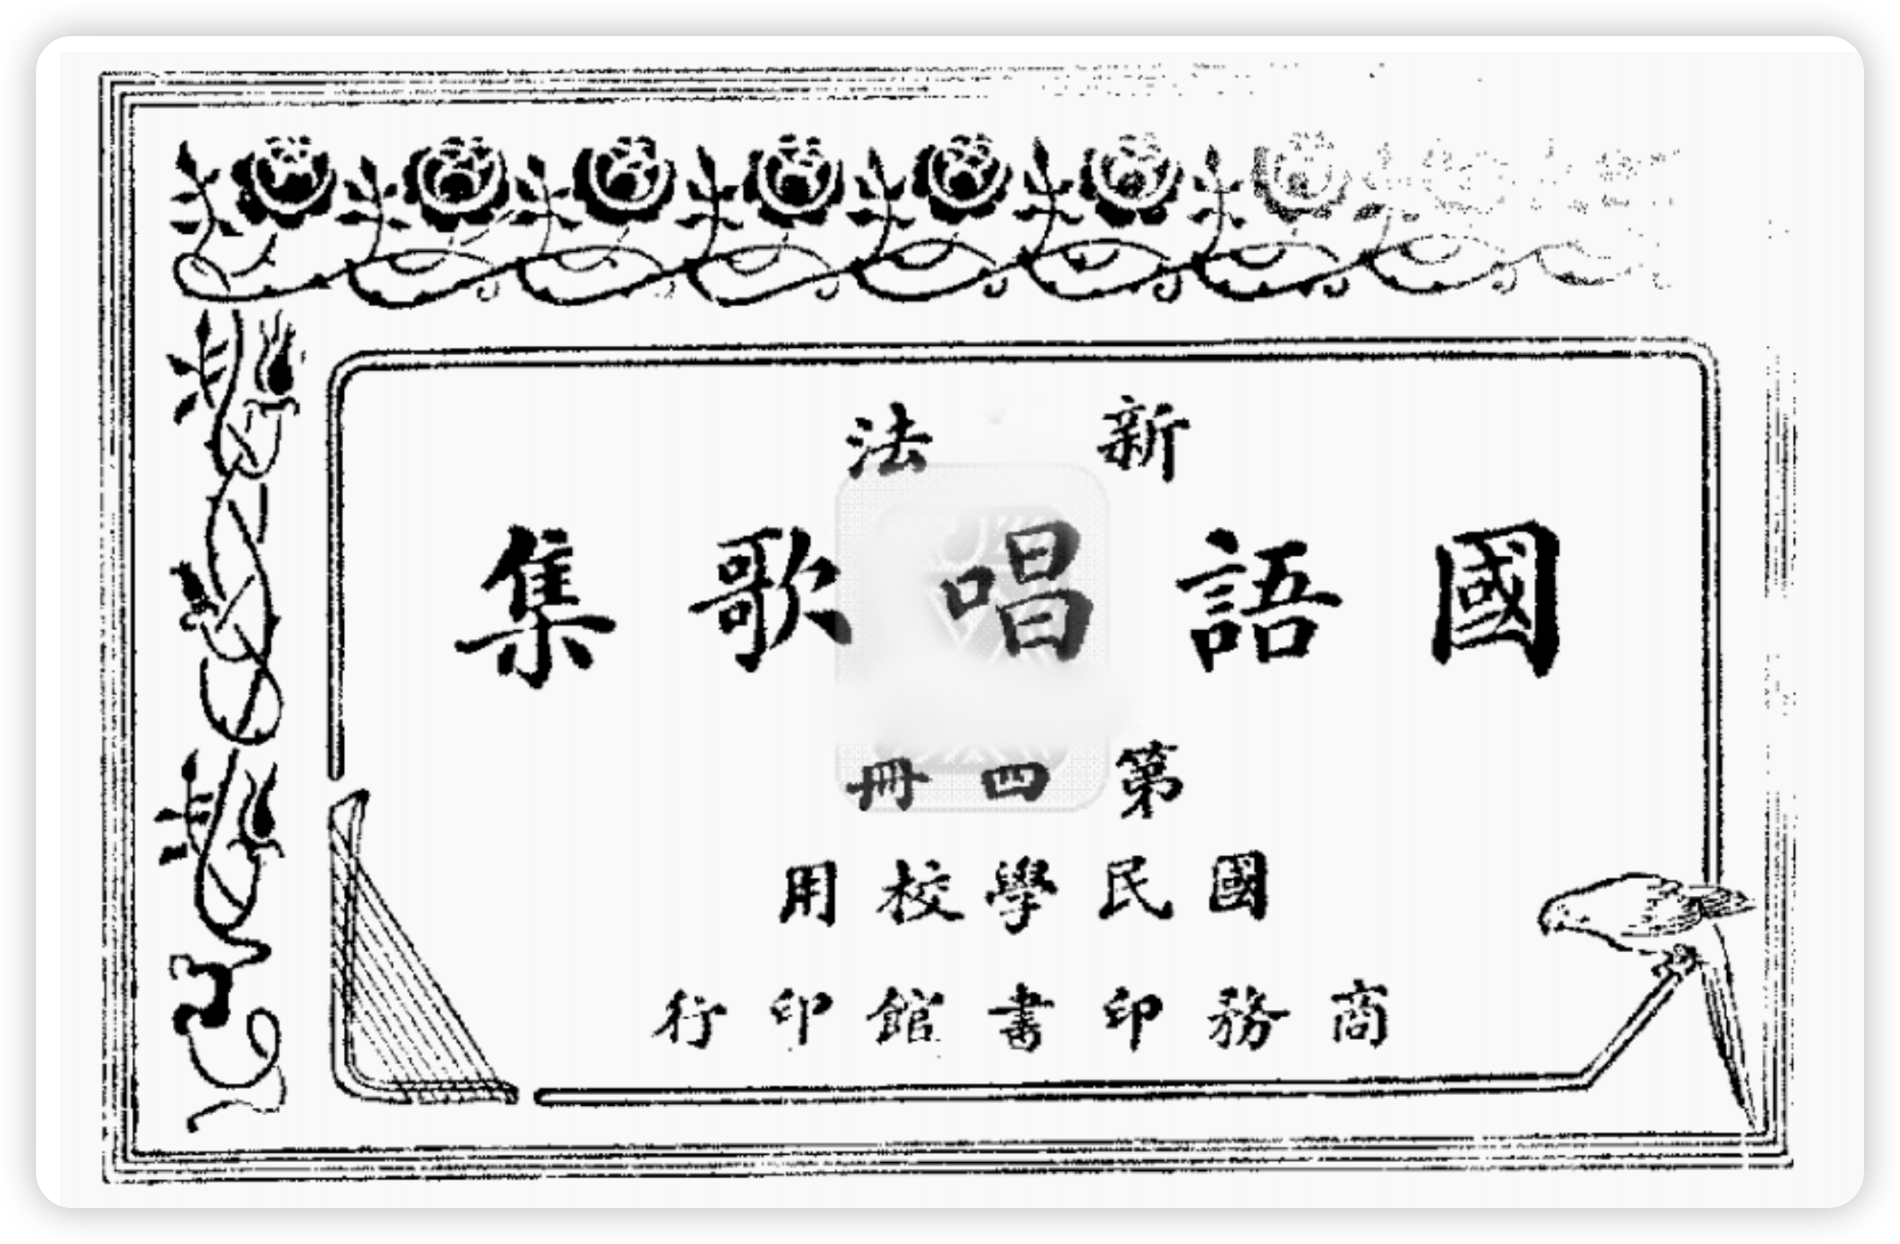 新法
國語唱歌集
第四冊
國民學校用
商務印書館印行